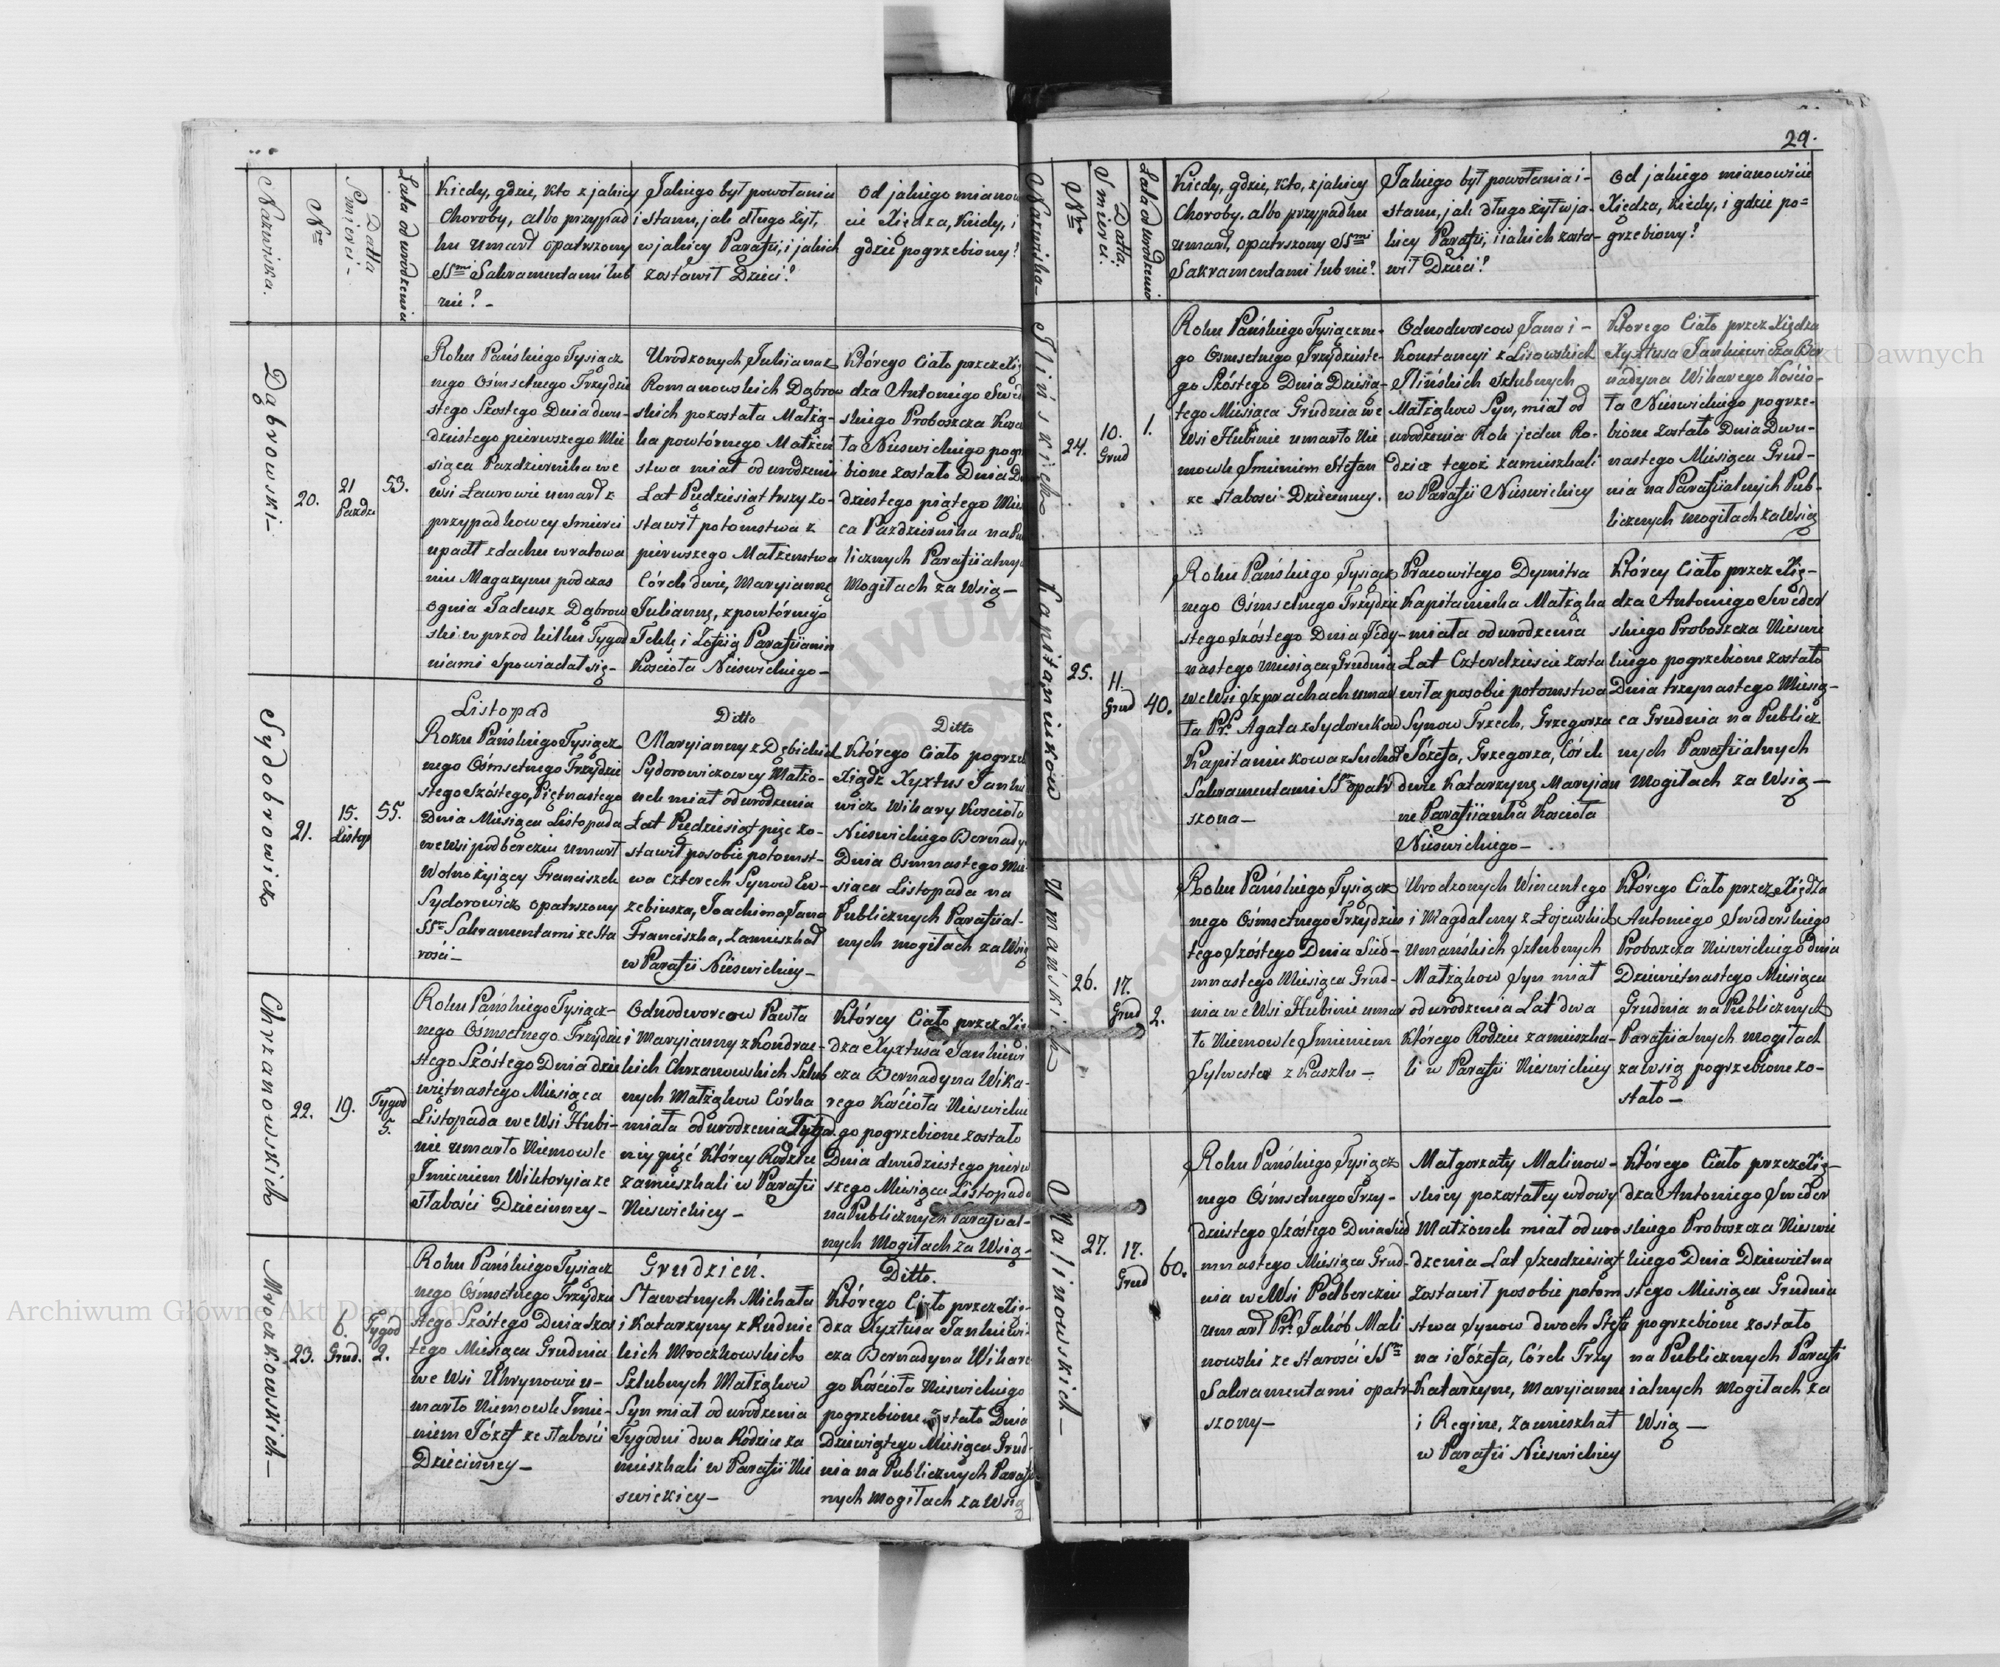 29.
Nazwiska.
Nro
Datta Śmierci
Lata od urodzenia
Kiedy, gdzie, kto z jakiey
Choroby, albo przypad
ku umarł opatrzony
SSmi Sakramentami lub
nie?
Jakiego był powołania
i stanu, jak długo żył,
w jakiey Parafii, i jakich
zostawił Dzieci?
Od jakiego mianowi
cie Xiędza, Kiedy, i
gdzie pogrzebiony?
Dąbrowski
20.
21 Pazdz
53.
Roku Pańskiego Tysiącz
nego Ośmsetnego Trzydzie
stego Szostego Dnia dwu-
dziestego pierwszego Mie
siąca Pazdziernika we
wsi Ławrowie umarł z
przypadkowey Smierci
upadł z dachu w ratowa
niu Magazynu podczas
ognia Tadeusz Dąbrow
ski w przod kilku Tygod
niami Spowiadał się
Urodzonych Juliana z
Romanowskich Dąbrow
skich pozostała Małżą-
ka powtórnego Małżeń
stwa miał od urodzenia
Lat Pędziesiąt trzy zo-
stawił potomstwa z
pierwszego Małżenstwa
Córek dwie, Maryiannę
Juliannę, z powtórnego
Teklę i Zofiią Parafiianin
Kościoła Nieswickiego
Którego Ciało przez Xię
dza Antoniego Swider
skiego Proboszcza Kościo
ła Nieswickiego pogrze
bione zostało Dnia Dw
dziestego piątego Miesi
ca Pazdziernika na Pub
licznych Parafiialnych
Mogiłach za Wsią
Sydobrowicz
21.
15. Listop
55.
Listopad
Roku Pańskiego Tysiącz
nego Ośmsetnego Trzydzie
stego Szóstego, Piętnastego
Dnia Miesiąca Listopada
we Wsi podbereziu umarł
Wolno żyiący Franciszek
Sydorowicz opatrzony
SSmi Sakramentami ze Sta
rości
Ditto
Maryianny z Dębickich
Sydorowiczowey Małżo-
nek miał od urodzenia
Lat Pędziesiąt pięć zo-
stawił po sobie potomst-
wa czterech Synow Eu-
zebiusza, Joachima, Jana
Franciszka, Zamieszkał
w Parafii Nieswickiey
Ditto
Którego Ciało pogrzeb
Xiądz Xyxtus Jankie
wicz Wikary Kościoła
Nieswickiego Bernady
Dnia Osmnastego Mie-
siąca Listopada na
Publicznych Parafiial-
nych mogiłach za Wsią
Chrzanowskich
22.
19.
Tygod 5.
Roku Pańskiego Tysiącz-
nego Ośmsetnego Trzydzie
stego Szóstego Dnia dzie
więtnastego Miesiąca
Listopada we Wsi Hubi-
nie umarło Niemowle
Imieniem Wiktoryia ze
słabości Dziecinney
Odnodworcow Pawła
i Maryianny z Kondrac-
kich Chrzanowskich Szlub
nych Małżąkow Córka
miała od urodzenia Tygod
ni pięć Którey Rodzice
zamieszkali w Parafii
Nieswickiey
Którey Ciało przez Xię
dza Xyxtusa Jankiewi
cza Bernadyna Wika-
rego Kościoła Nieswickie
go pogrzebione zostało
Dnia dwudziestego pierw
szego Miesiąca Listopada
na Publicznych Parafiial-
nych Mogiłach za Wsią
Mroczkowskich
23.
6. Grud.
Tygod 2.
Roku Pańskiego Tysiącz
nego Ośmsetnego Trzydzie
stego Szóstego Dnia szos
tego Miesiąca Grudnia
we Wsi Uhrynowie u-
marło Niemowle Imie-
niem Józef ze słabości
Dziecinney
Grudzień.
Sławetnych Michała
i Katarzyny z Rudnic
kich Mroczkowskich
Szlubnych Małżąkow
Syn miał od urodzenia
Tygodni dwa Rodzice za
mieszkali w Parafii Nie
swickiey
Ditto.
Którego Ciało przez Xię-
dza Xyxtusa Jankiewi-
cza Bernadyna Wikare
go Kościoła Nieswickiego
pogrzebione zostało Dnia
Dziewiątego Miesiąca Grud-
nia na Publicznych Parafi
nych mogiłach za Wsią
Nazwiska
Nro
Datta, Smierci.
Lata od urodzenia
Kiedy, gdzie, kto, z jakiey
Choroby, albo przypadku
umarł, opatrzony SSmi
Sakramentami lub nie?
Jakiego był powołania i-
stanu, jak długo żył w ja-
kiey Parafii, i iakich zosta-
wił Dzieci?
Od jakiego mianowicie
Xiędza, kiedy, i gdzie po-
grzebiony?
Ilińskich
24.
10. Grud
1.
Roku Pańskiego Tysiączne-
go Osmsetnego Trzydzieste-
go Szóstego Dnia Dziesią-
tego Miesiąca Grudnia we
Wsi Hubinie umarło Nie
mowle Imieniem Stefan
ze słabości Dziecinney.
Odnodworcow Jana i-
Konstancyi z Lisowskich
Ilińskich szlubnych
Małżąkow Syn, miał od
urodzenia Rok jeden Ro-
dzice tegoż zamieszkali
w Parafii Nieswickiey
Którego Ciało przez Xiędza
Xyxtusa Jankiewicza Ber
nadyna Wikarego Kościo-
ła Nieswickiego pogrze-
bione zostało Dnia Dwu-
nastego Miesiąca Grud-
nia na Parafiialnych Pub-
licznych mogiłach za Wsią
Kapitaniuków
25.
11. Grud
40.
Roku Pańskiego Tysiącz
nego Ośmsetnego Trzydzie
stego Szóstego Dnia Jedy-
nastego Miesiąca Grudnia
we Wsi Szprachach umar
ła Pr. Agata z Sydorukow
Kapitaniukowa z Suchot
Sakramentami SS opatr
szona
Pracowitego Dymitra
Kapitaniuka Małżąka
miała od urodzenia
Lat Czterdzieście zosta
wiła po sobie potomstwa
Synow Trzech, Grzegorza
Józefa, Grzegorza, Córek
dwie Katarzynę Maryian
nę Parafiianka Kościoła
Nieswickiego
Którey Ciało przez Xię-
dza Antoniego Swider
skiego Proboszcza Nieswic
kiego pogrzebione zostało
Dnia trzynastego Miesią-
ca Grudnia na Publicz
nych Parafiialnych
Mogiłach za Wsią
Umańskich
26.
17. Grud
2.
Roku Pańskiego, Tysiącz
nego Ośmsetnego Trzydzies
tego Szóstego Dnia Sied-
mnastego Miesiąca Grud-
nia we Wsi Hubinie umar
ło Niemowle Imieniem
Sylwester z Kaszlu
Urodzonych Wincentego
i Magdaleny z Łojewskich
Umańskich Szlubnych
Małżąkow Syn miał
od urodzenia Lat dwa
Którego Rodzice zamieszka-
li w Parafii Nieswickiey
Którego Ciało przez Xiędza
Antoniego Swiderskiego
Proboszcza Nieswickiego dnia
Dziewietnastego Miesiąca
Grudnia na Publicznych
Parafiialnych mogiłach
za Wsią pogrzebione zo-
stało
Malinowskich
27.
17. Grud
60.
Roku Pańskiego Tysiącz
nego Osmsetnego Trzy-
dziestego Szóstego Dnia Sied
mnastego Miesiąca Grud-
nia we Wsi Podbereziu
umarł Pr. Jakób Mali
nowski ze Starości SSmi
Sakramentami opatr-
szony
Małgorzaty Malinow-
skiey pozostałey wdowy
Małżonek miał od uro
dzenia Lat Szesdziesiąt
zostawił po sobie potom
stwa Synow dwoch Stefa
na i Józefa, Córek Trzy
Katarzynę, Maryianne
i Reginę, Zamieszkał
w Parafii Nieswickiey
Którego Ciało przez Xię-
dza Antoniego Swider
skiego Proboszcza Nieswic
kiego Dnia Dziewietna
stego Miesiąca Grudnia
pogrzebione zostało
na Publicznych Parafi
ialnych Mogiłach za
Wsią
Archiwum Główne Akt Dawnych